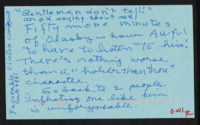 "Gentlemen don't tell"
an old saying about sex
Fifty more minutes
of Oleaby - how Awful
to have to listen to him!
There's nothing worse
than a "holier than thou"
character.
So back to 2 people.
Inflicting one like him
is unforgiveable.